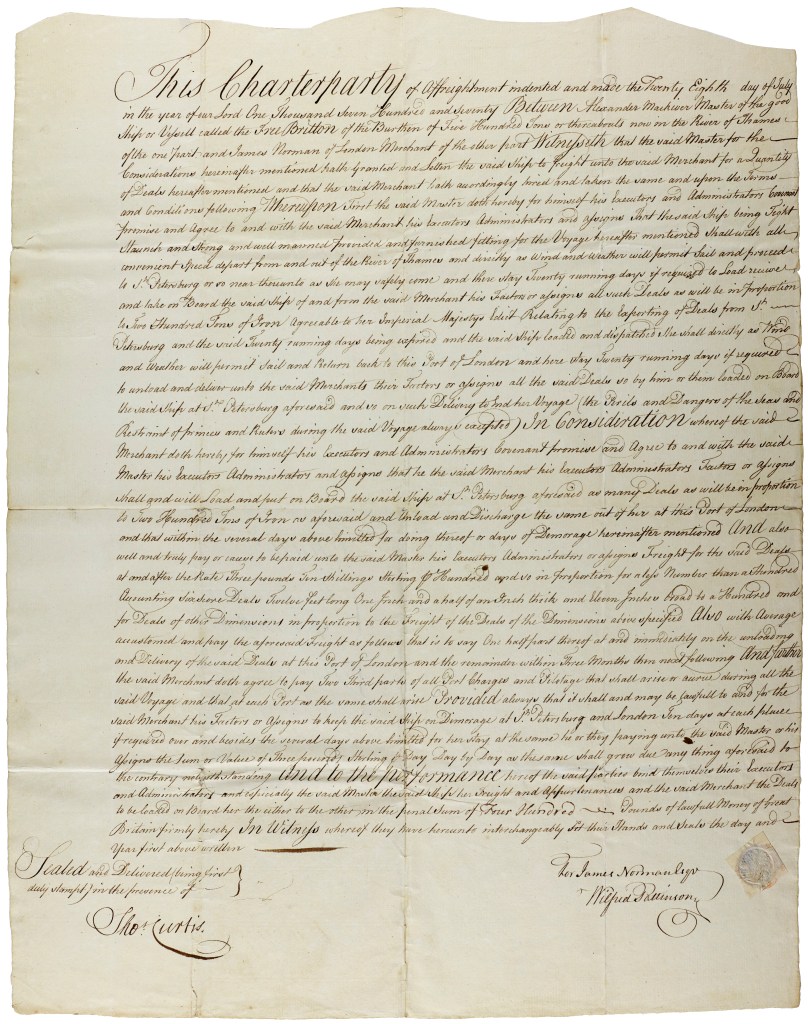 This Charterparty of Affreightment indented and made the Twenty Eighth day of July
in the year of our Lord One Thousand Seven Hundred and Seventy Between Alexander Mackiver Master of the good
Ship or Vessell called the Free Britton of the Burthen of Five Hundred Tons or thereabouts now in the River of Thames
of the one part and James Norman of London Merchant of the other part Witnesseth that the said Master for the
Considerations hereinafter mentioned hath Granted and Letten the said Ship to freight unto the said Merchant for a Quantity
of Deals hereafter mentioned and that the said Merchant hath accordingly hired and taken the same and upon the Terms
and Conditions following Whereupon First the said Master doth hereby for himself his Executors and Administrators Covenant
promise and Agree to and with the said Merchant his Executors Administrators and assigns That the said Ship being Tight
Staunch and Strong and well manned provided and furnished fitting for the Voyage hereafter mentioned Shall with all
convenient Speed depart from and out of the River of Thames and directly as Wind and Weather will permit Sail and proceed
to St. Petersburg or so near thereunto as She may safely come and there Stay Twenty running days if required to Load receive
and take on Board the said Ship of and from the said Merchant his Factors or assigns all such Deals as will be in proportion
to Two Hundred Tons of Iron Agreeable to her Imperial Majestys Edict Relating to the Exporting of Deals from St.
Petersburg and the said Twenty running days being expired and the said Ship loaded and dispatched She shall directly as Wind
and Weather will permit Sail and Return back to this Port of London and here Stay Twenty running days if required
to unload and deliver unto the said Merchants their Factors or assigns all the said Deals so by him or them loaded on Board
the said Ship at St. Petersburg aforesaid and so on such Delivery to End her Voyage (the Perils and Dangers of the Seas and
Restraint of princes and Rulers during the said Voyage always excepted) In Consideration whereof the said
Merchant doth hereby for himself his Executors and Administrators Covenant promise and Agree to and with the said
Master his Executors Administrators and assigns that he the said Merchant his Executors Administrators Factors or assigns
shall and will Load and put on Board the said Ship at St. Petersburg aforesaid as many Deals as will be in proportion
to Two Hundred Tons of Iron as aforesaid and Unload and Discharge the same out of her at this Port of London
and that within the several days above limitted for doing thereof or days of Demorage hereinafter mentioned And also
well and truly pay or cause to be paid unto the said Master his Executors Administrators or assigns Freight for the said Deals
at and after the Rate Three pounds Ten Shillings Sterling pr. Hundred and so in Proportion for a less Number than a Hundred
Accounting Sixscore Deals Twelve feet long One Inch and a half of an Inch thick and Eleven Inches broad to a Hundred and
for Deals of other Dimensions in proportion to the Freight of the Deals of the Dimensions above specified Also with Average
accustomed and pay the aforesaid Freight as follows that is to say One half part thereof at and immediately on the unloading
and Delivery of the said Deals at this Port of London and the remainder within Three Months then next following And further
the said Merchant doth agree to pay Two Third parts of all Port Charges and Pilotage that shall arise or accrue during all the
said Voyage and that at each Port as the same shall arise Provided always that it shall and may be lawfull to and for the
said Merchant his Factors or Assigns to keep the said Ship on Demorage at St. Petersburg and London Ten days at each place
if required over and besides the several days above limitted for her Stay at the same he or they paying unto the said Master or his
Assigns the Sum or Value of Three pounds Sterling pr. Day Day by Day as the same shall grow due any thing aforesaid to
the contrary notwithstanding And to the performance hereof the said parties bind themselves their Executors
and Administrators and especially the said Master the said Ship her Freight and Appurtenances and the said Merchant the Deals
to be loaded on Board her the either to the other in the penal Sum of Four Hundred Pounds of lawfull Money of Great
Britain firmly hereby In Witness whereof they have hereunto interchangeably Set their Hands and Seals the day and
Year first above written
Sealed and Delivered (being first
duly stampt) in the presence of
Thos. Curtis.
For James Norman Esqr
Wilfred Pattinson